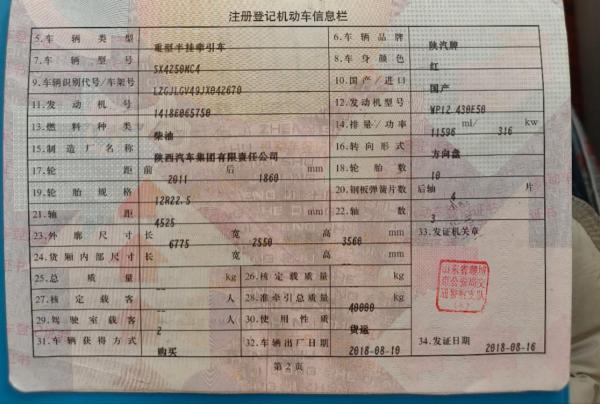 注册登记机动车信息栏
5.车辆类型 重型半挂牵引车 6.车辆品牌 陕汽牌
7.车辆型号 SX4250MC4 8.车身颜色 红
9.车辆识别代号/车架号 LZGJLGV49JX042670 10.国产/进口 国产
11.发动机号 1418E065750 12.发动机型号 WP12.430E50
13.燃料种类 柴油 14.排量/功率 11596 ml/ 316 kw
15.制造厂名称 陕西汽车集团有限责任公司 16.转向形式 方向盘
17.轮距 前 2011 后 1860 mm 18.轮胎数 10
19.轮胎规格 12R22.5 20.钢板弹簧片数 后轴 4 片
21.轴距 4525 mm 22.轴数 3
23.外廓尺寸 长 6775 宽 2550 高 3560 mm 33.发证机关章
24.货厢内部尺寸 长 -- 宽 -- 高 -- mm
25.总质量 -- kg 26.核定载质量 -- kg
27.核定载客 -- 人 28.准牵引总质量 40000 kg
29.驾驶室载客 2 人 30.使用性质 货运
31.车辆获得方式 购买 32.车辆出厂日期 2018-08-10 34.发证日期 2018-08-16
第2页